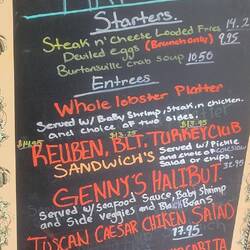 Starters.
Steak n' cheese Loaded Fries 14.
Deviled eggs (Brunch only) 9.95
Burtonsville Crab soup 10.50
Entrees
Whole lobster Platter
Served w/ Baby Shrimp, steak, n chicken
and choice of two sides.
$14.95 $13.25 $13.95
REUBEN, BLT, TURKEY CLUB
SANDWICH'S Served w/ Pickle
and choice of
or chips.
GENNY'S HALIBUT. 32.95
Served w/ Seafood Sauce, Baby Shrimp
and Side Veggies and Black Beans
TUSCAN CAESAR CHIKEN SALAD
17.95